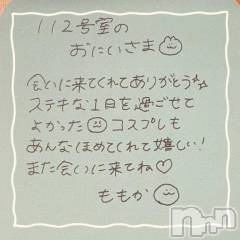 112号室の
おにいさま
会いに来てくれてありがとう
ステキな1日を過ごせて
よかった コスプレも
あんなほめてくれて嬉しい!
また会いに来てね♡
ももか